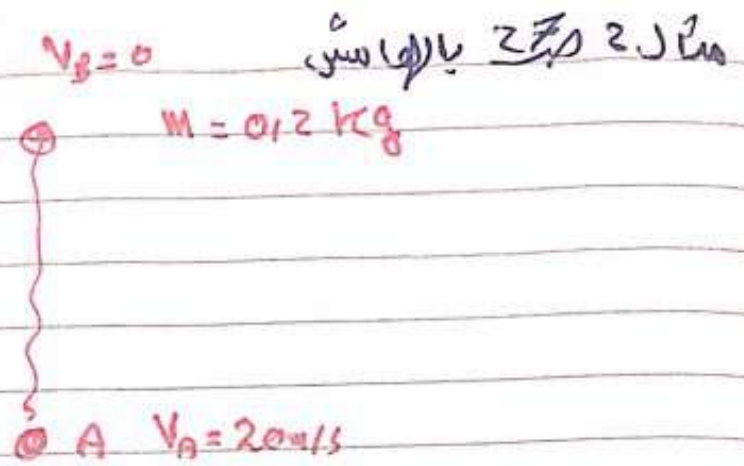 مثال 2 ص 22 بالهامش
V_B = 0
M = 0,2 kg
A V_A = 20 m/s